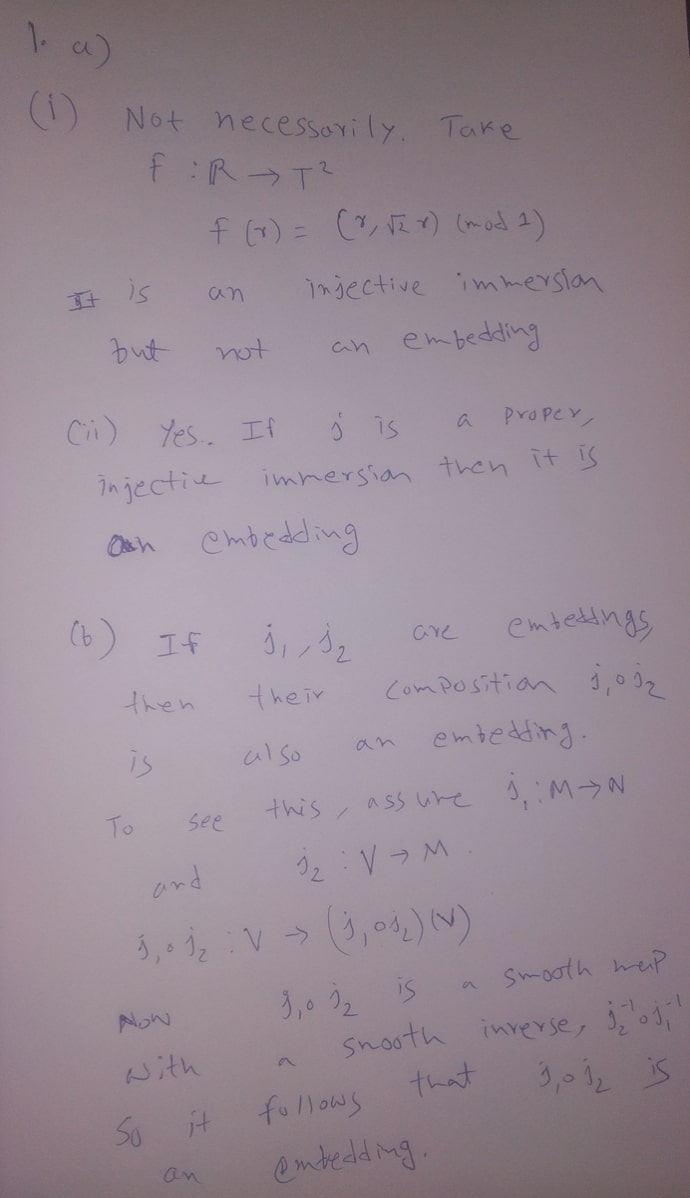 1. a)
(i) Not necessarily. Take
f : ℝ → T²
f(x) = (x, √2 x) (mod 1)
It is an injective immersion
but not an embedding
(ii) Yes. If j is a proper,
injective immersion then it is
an embedding
(b) If j₁, j₂ are embeddings,
then their composition j₁∘j₂
is also an embedding.
To see this, assume j₁ : M → N
and j₂ : V → M.
j₁∘j₂ : V → (j₁∘j₂)(V)
Now j₁∘j₂ is a smooth map
with a smooth inverse, j₂⁻¹∘j₁⁻¹
So it follows that j₁∘j₂ is
an embedding.